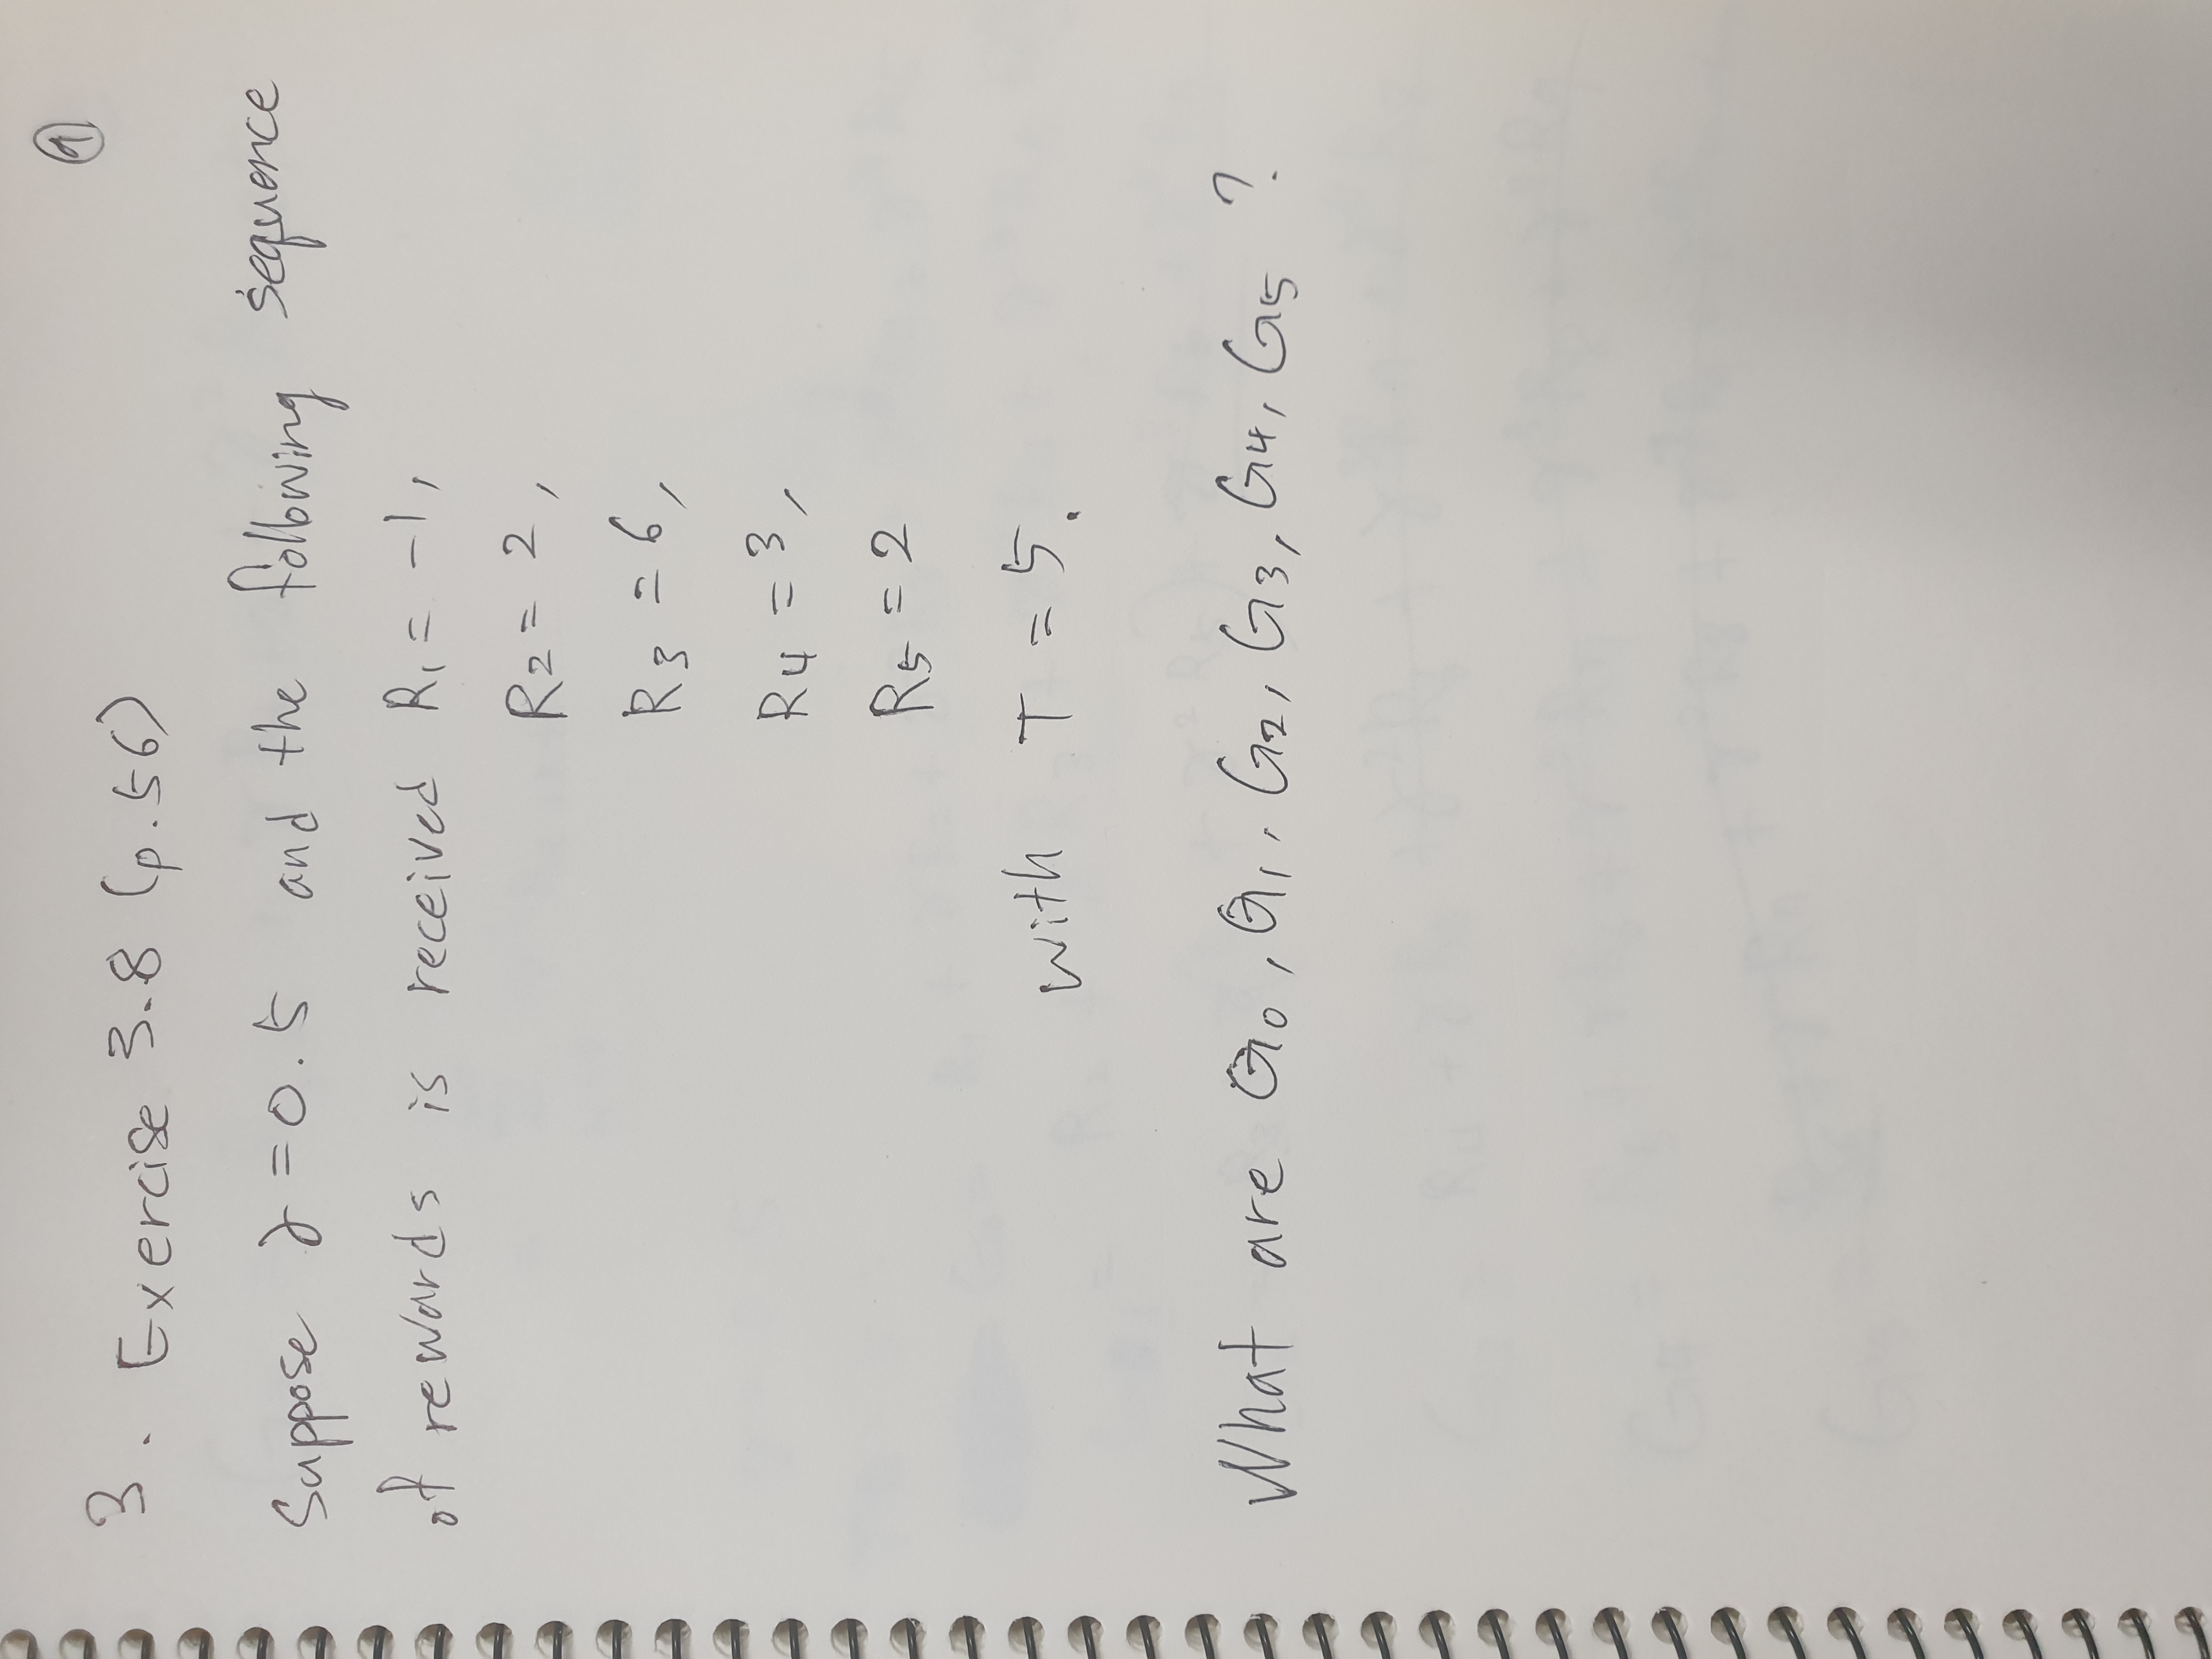 ①
3. Exercise 3.8 (p.56)
Suppose γ = 0.5 and the following sequence
of rewards is received R₁ = -1,
R₂ = 2,
R₃ = 6,
R₄ = 3,
R₅ = 2
with T = 5.
What are G₀, G₁, G₂, G₃, G₄, G₅ ?